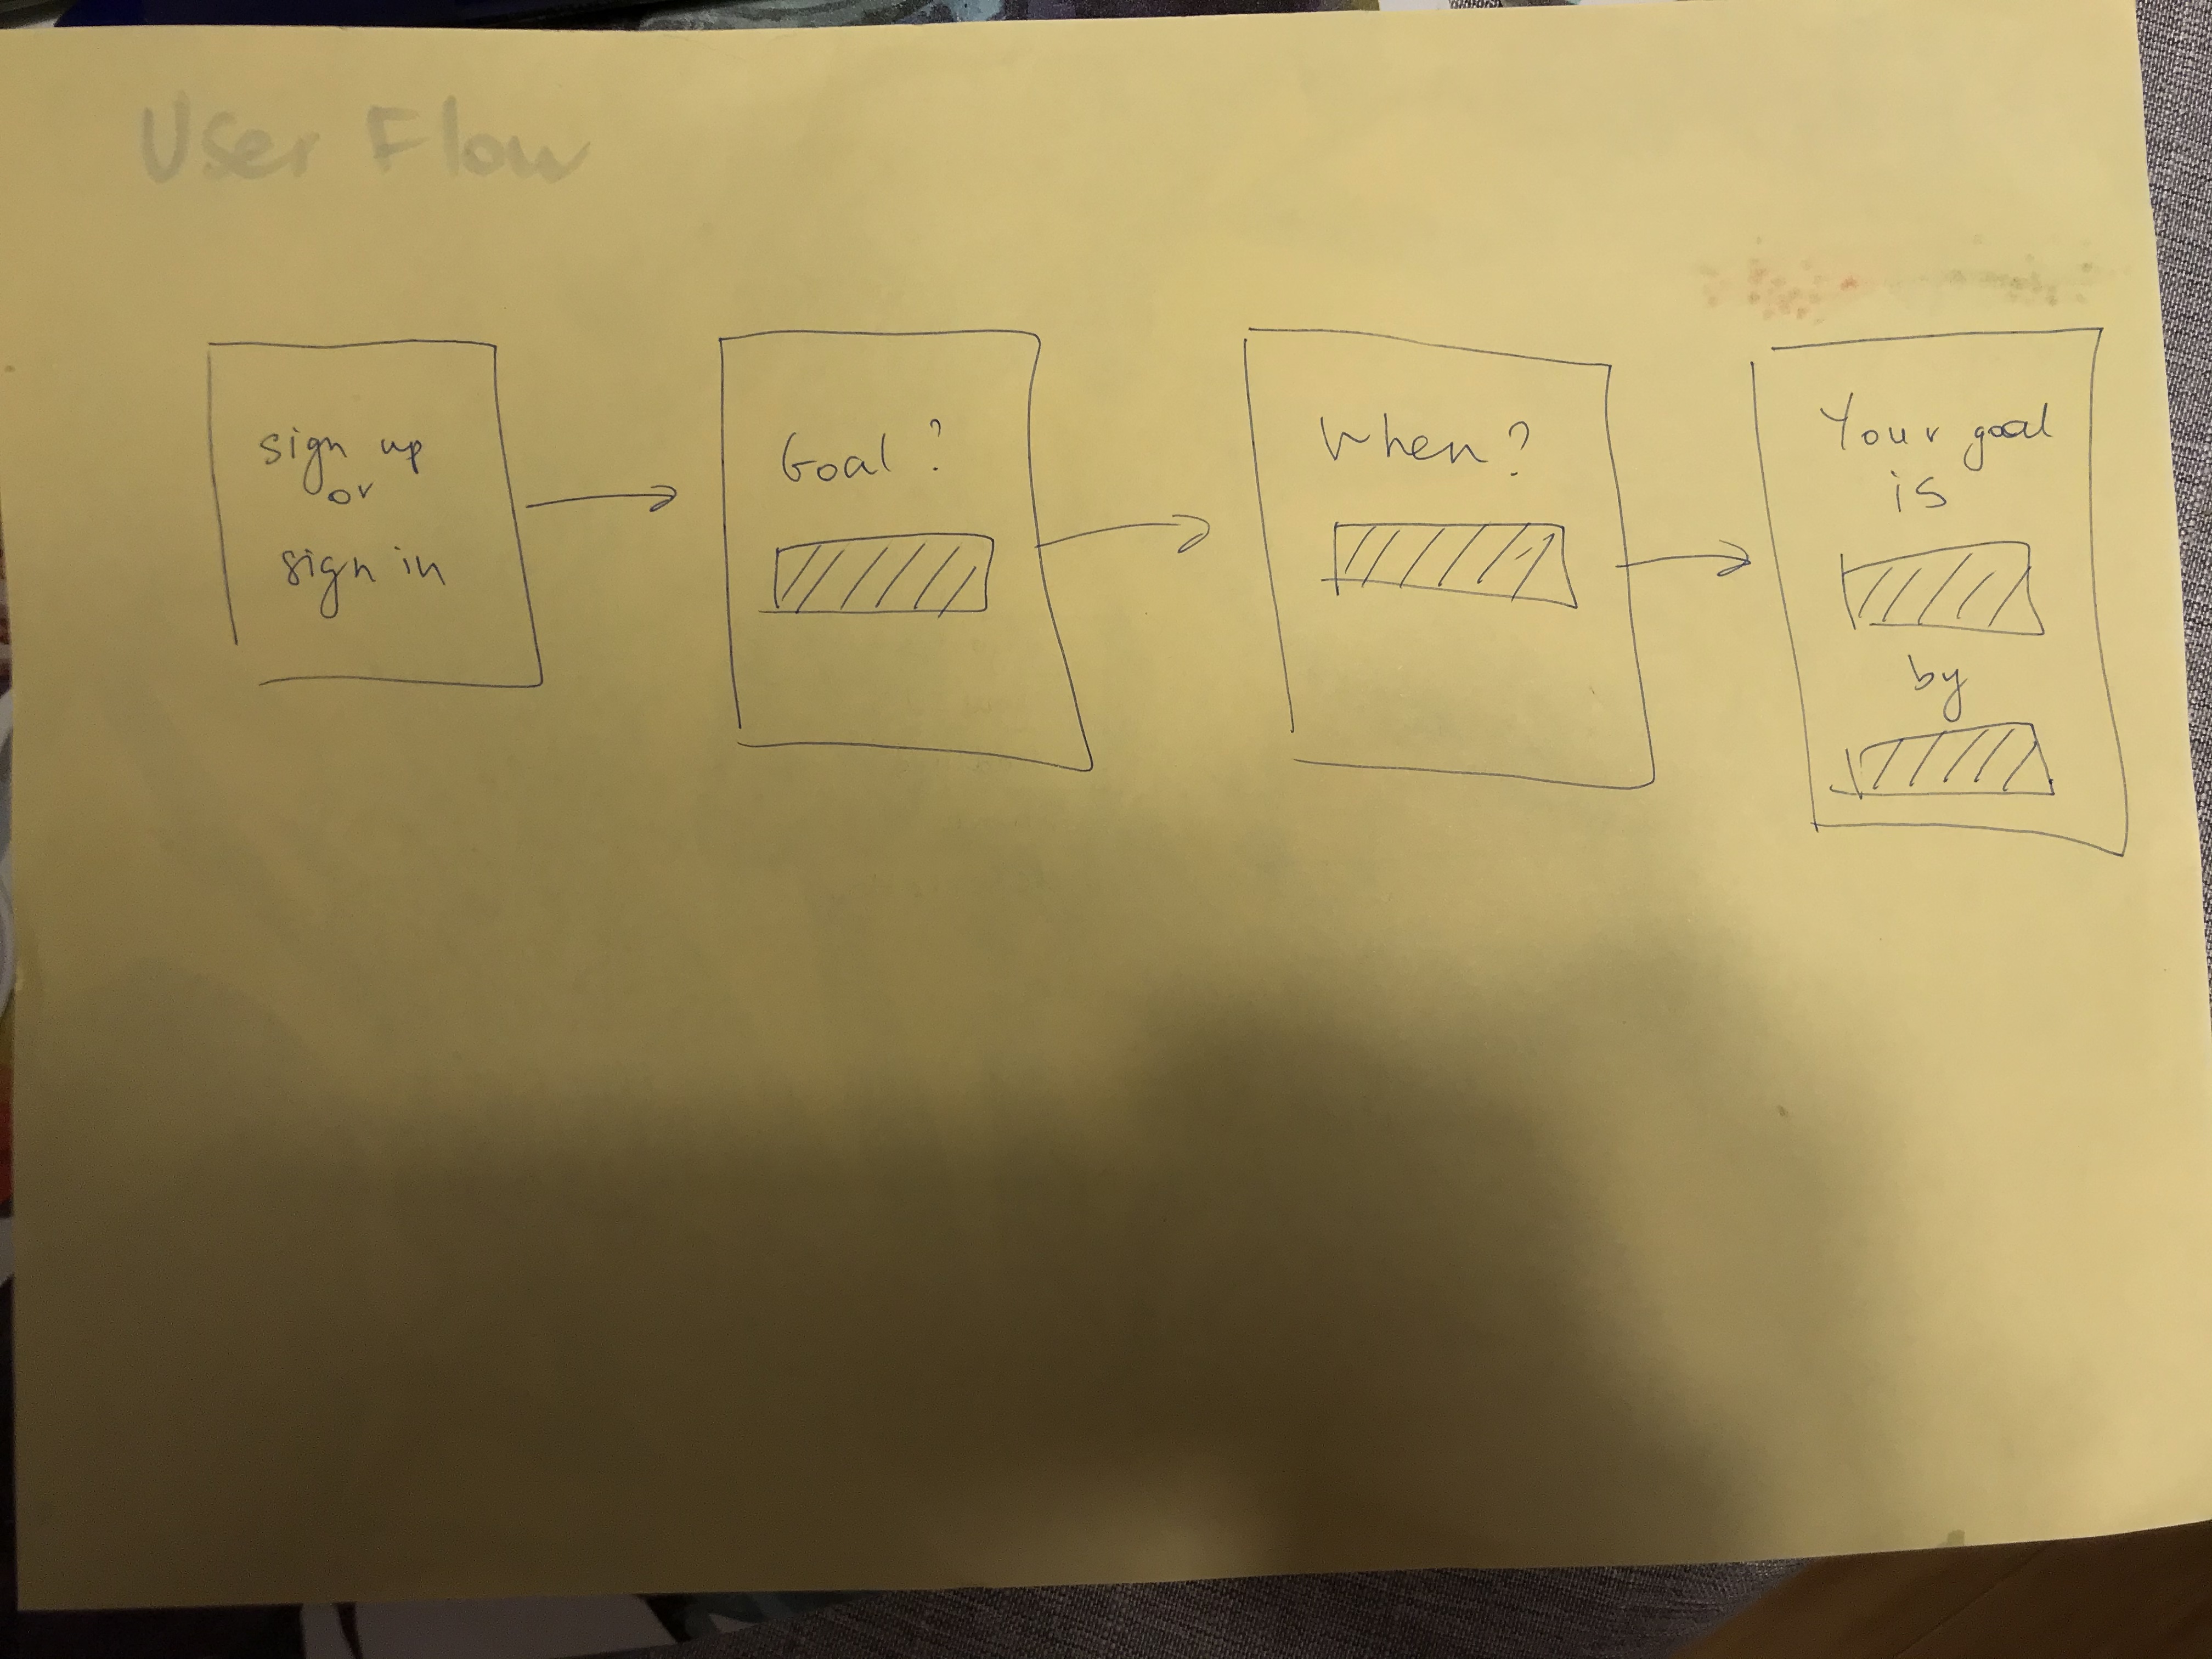 User Flow
sign up
or
sign in
Goal?
When?
Your goal
is
by